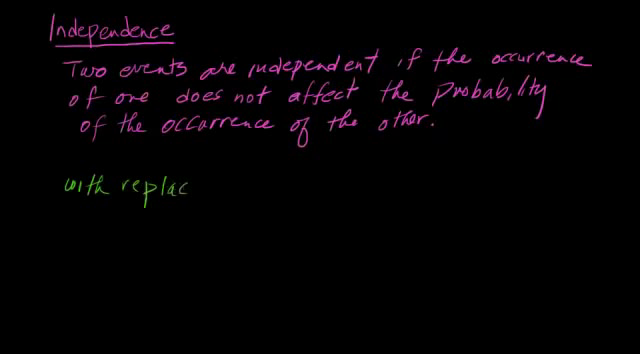 Independence
Two events are independent if the occurrence
of one does not affect the Probability
of the occurrence of the other.
with replac